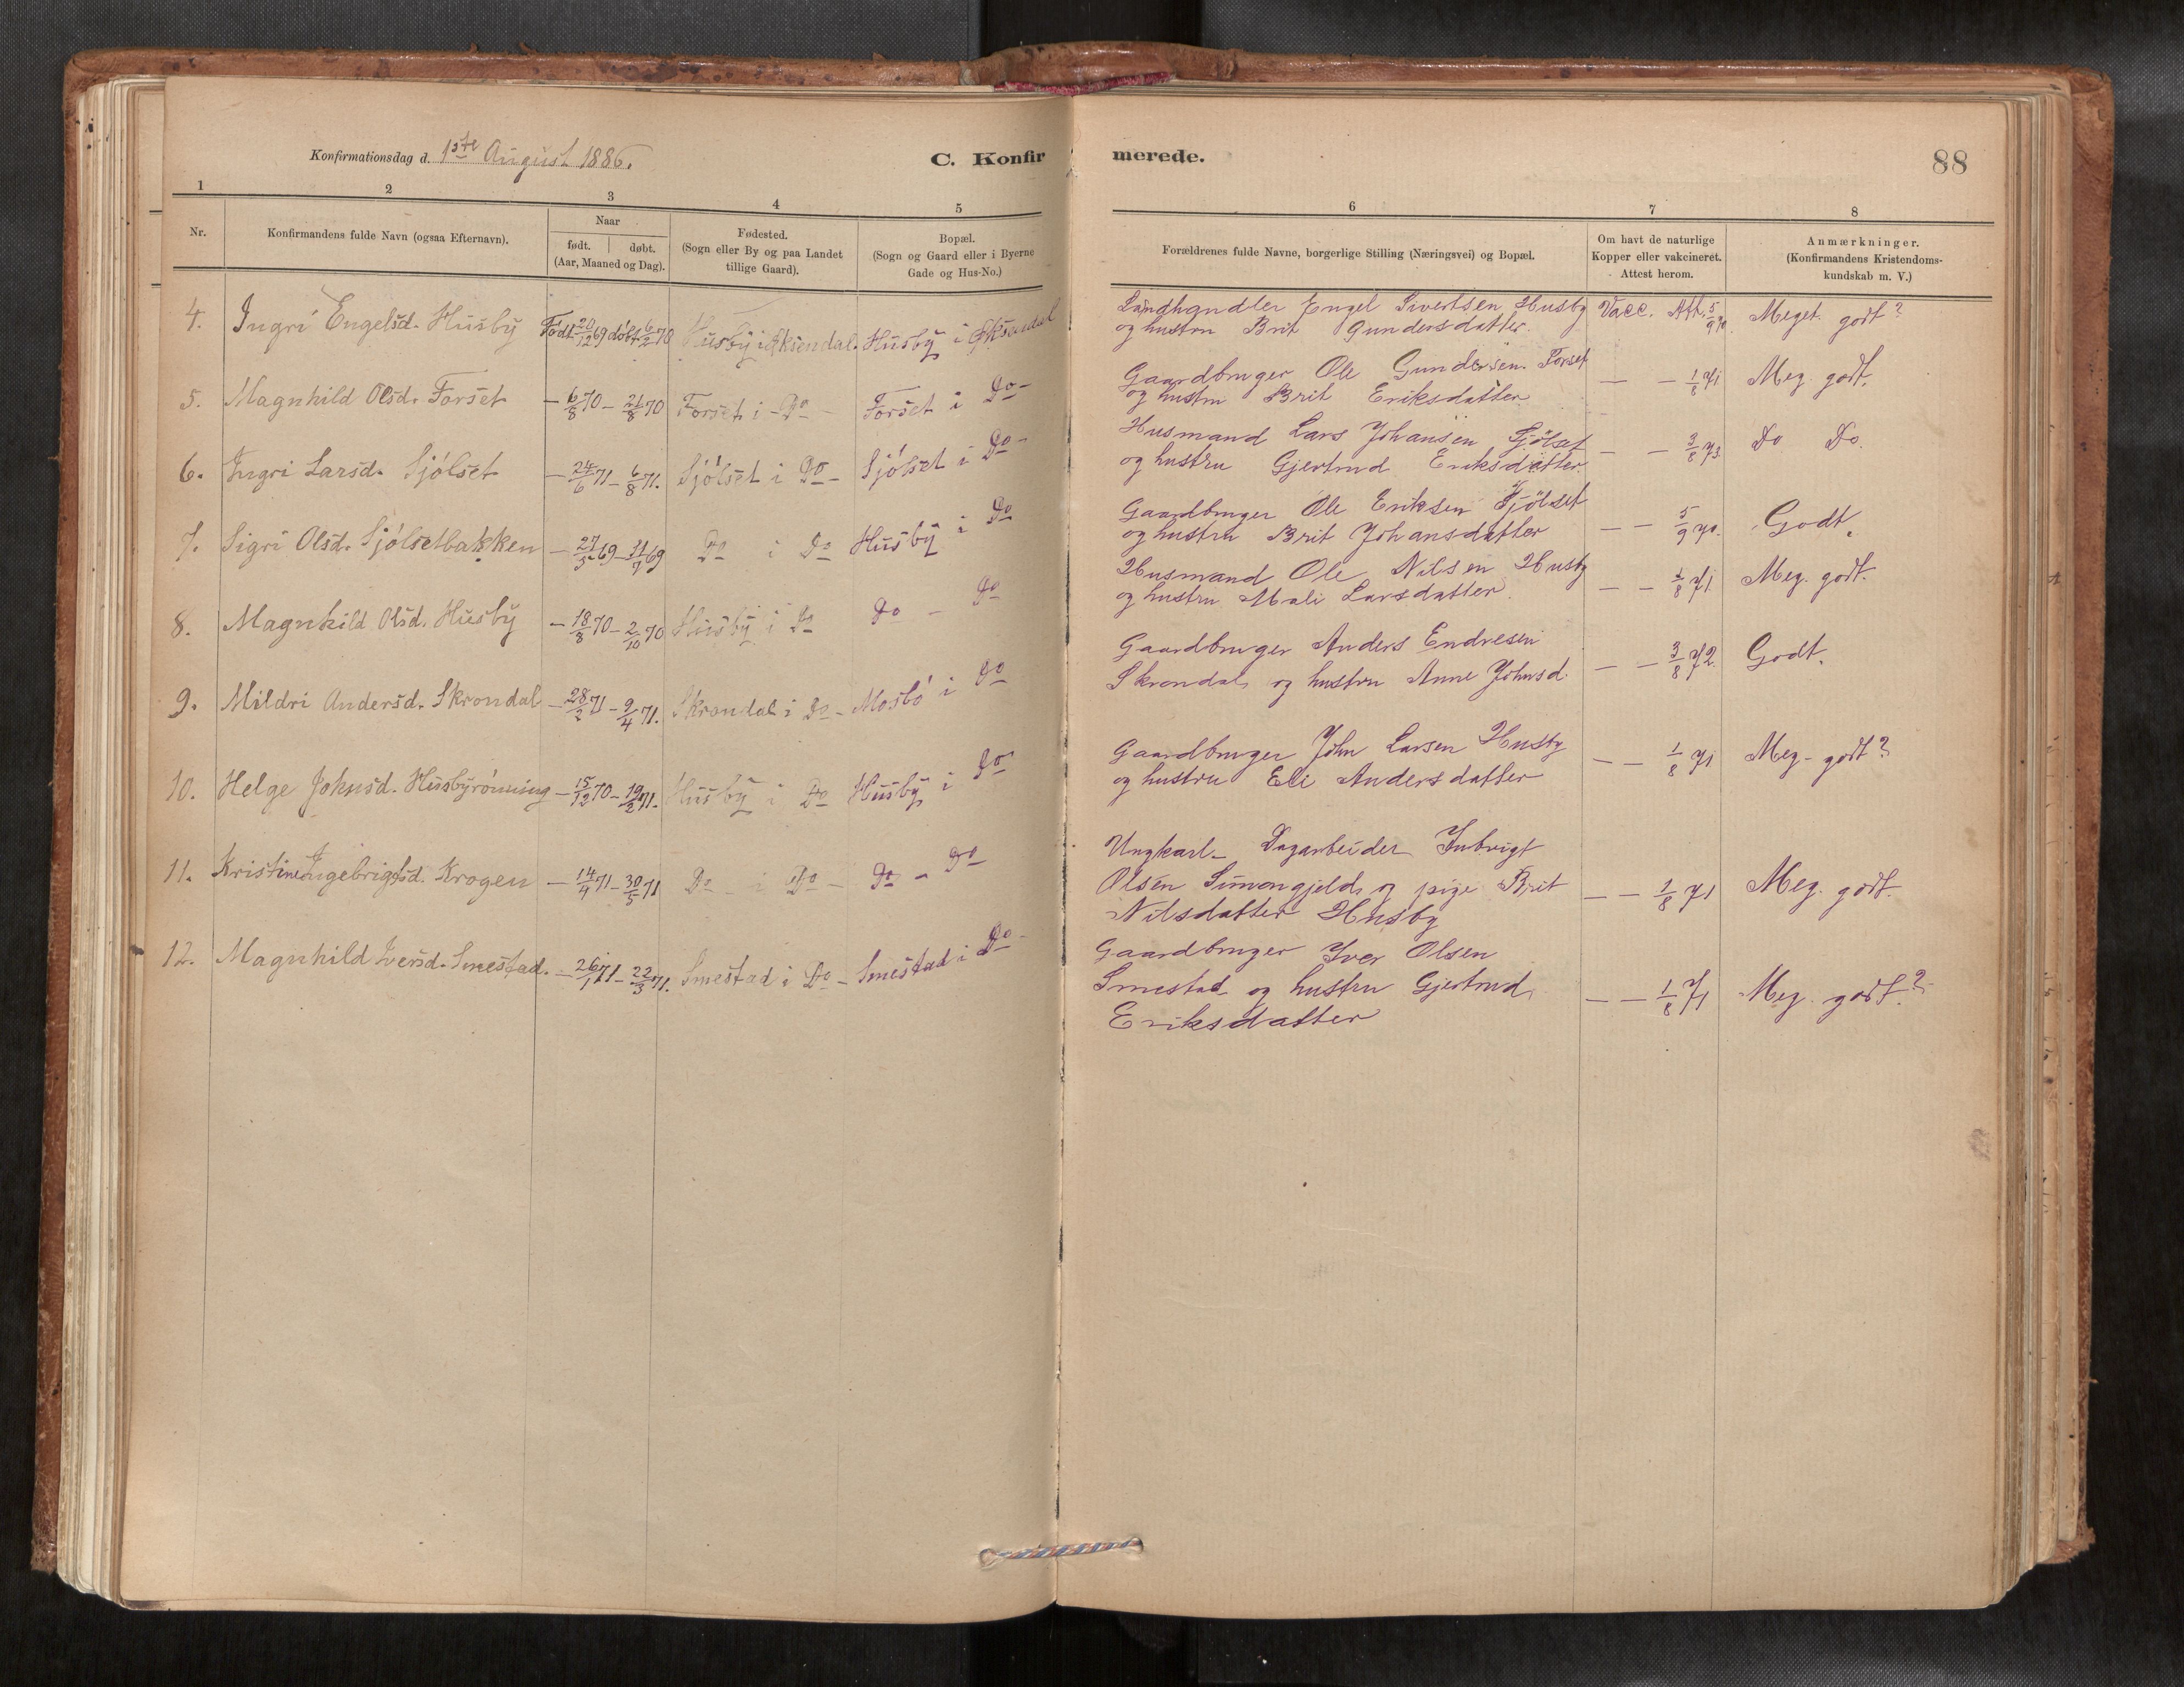 Konfirmationsdag d. 1ste August 1886.
C. Konfir
merede.
88
1 2 3 4 5 6 7 8
Nr.
Konfirmandens fulde Navn (ogsaa Efternavn).
Naar
født. døbt.
(Aar, Maaned og Dag).
Fødested.
(Sogn eller By og paa Landet
tillige Gaard).
Bopæl.
(Sogn og Gaard eller i Byerne
Gade og Hus-No.)
Forældrenes fulde Navne, borgerlige Stilling (Næringsvei) og Bopæl.
Om havt de naturlige
Kopper eller vakcineret.
Attest herom.
Anmærkninger.
(Konfirmandens Kristendoms-
kundskab m. V.)
4. Ingri Engelsd. Husby Født 20/12 69 døbt 6/2 70 Husby i Øksendal. Husby i Øksendal
Landhandler Engel Sivertsen Husby Vacc. Att. 5/9 70 Meget godt?
og hustru Brit Gundersdatter.
5. Magnhild Olsd. Forset — 6/8 70 — 21/8 70 Forset i Do — Forset i Do —
Gaardbruger Ole Gundersen Forset — — 1/8 71 Meg. godt.
og hustru Brit Eriksdatter
6. Ingri Larsd. Sjölset — 24/6 71 — 6/8 71. Sjölset i Do — Sjölset i Do —
Husmand Lars Johansen Sjölset — — 3/8 73. Do Do.
og hustru Gjertrud Eriksdatter.
7. Sigri Olsd. Sjölsetbakken — 27/5 69 — 11/7 69 Do i Do Husby i Do
Gaardbruger Ole Eriksen Sjölset — — 5/9 70. Godt.
og hustru Brit Johansdatter
8. Magnhild Olsd. Husby — 18/8 70 — 2/10 70 Husby i Do Do — Do
Husmand Ole Nilsen Husby — — 1/8 71. Meg. godt.
og hustru Mali Larsdatter.
9. Mildri Andersd. Skrondal — 28/2 71 — 9/4 71. Skrondal i Do — Mosbö i Do
Gaardbruger Anders Endresen — — 3/8 72. Godt.
Skrondal og hustru Anne Johnsd.
10. Helge Johnsd. Husbyrönning — 15/12 70 — 19/2 71. Husby i Do Husby i Do
Gaardbruger John Larsen Husby — — 1/8 71 Meg. godt?
og hustru Eli Andersdatter
11. Kristine Ingebrigtsd. Krogen — 14/4 71 — 30/5 71 Do — i Do — Do — Do
Ungkarl — Dagarbeider Inbrigt
Olsen Simongjeld og pige Brit — — 1/8 71 Meg. godt.
Nilsdatter Husby
12. Magnhild Iversd. Smestad. — 26/1 71 — 22/3 71. Smestad i Do — Smestad i Do —
Gaardbruger Iver Olsen
Smestad og hustru Gjertrud — — 1/8 71 Meg. godt.?
Eriksdatter